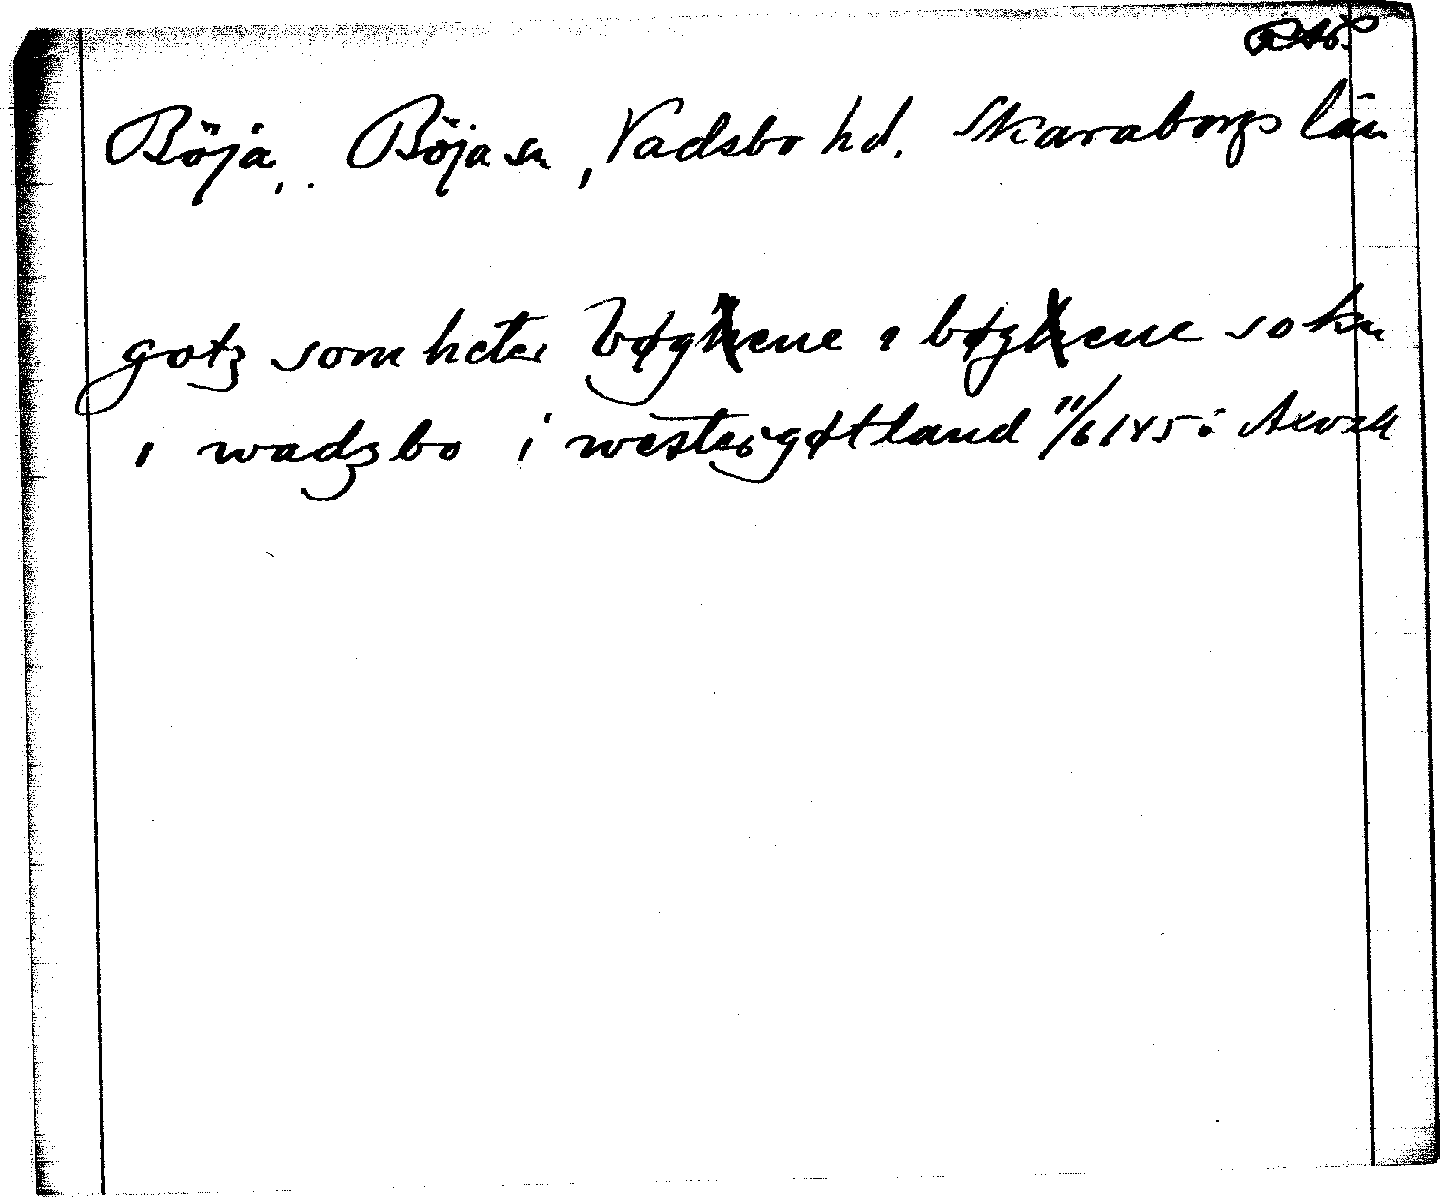 RAP.
Böja, . Böja sn , Vadsbo hd. Skaraborgs län
gotz som heter bøghene i bøghene sokn
i wadzbo i westergøtland 11/6 145